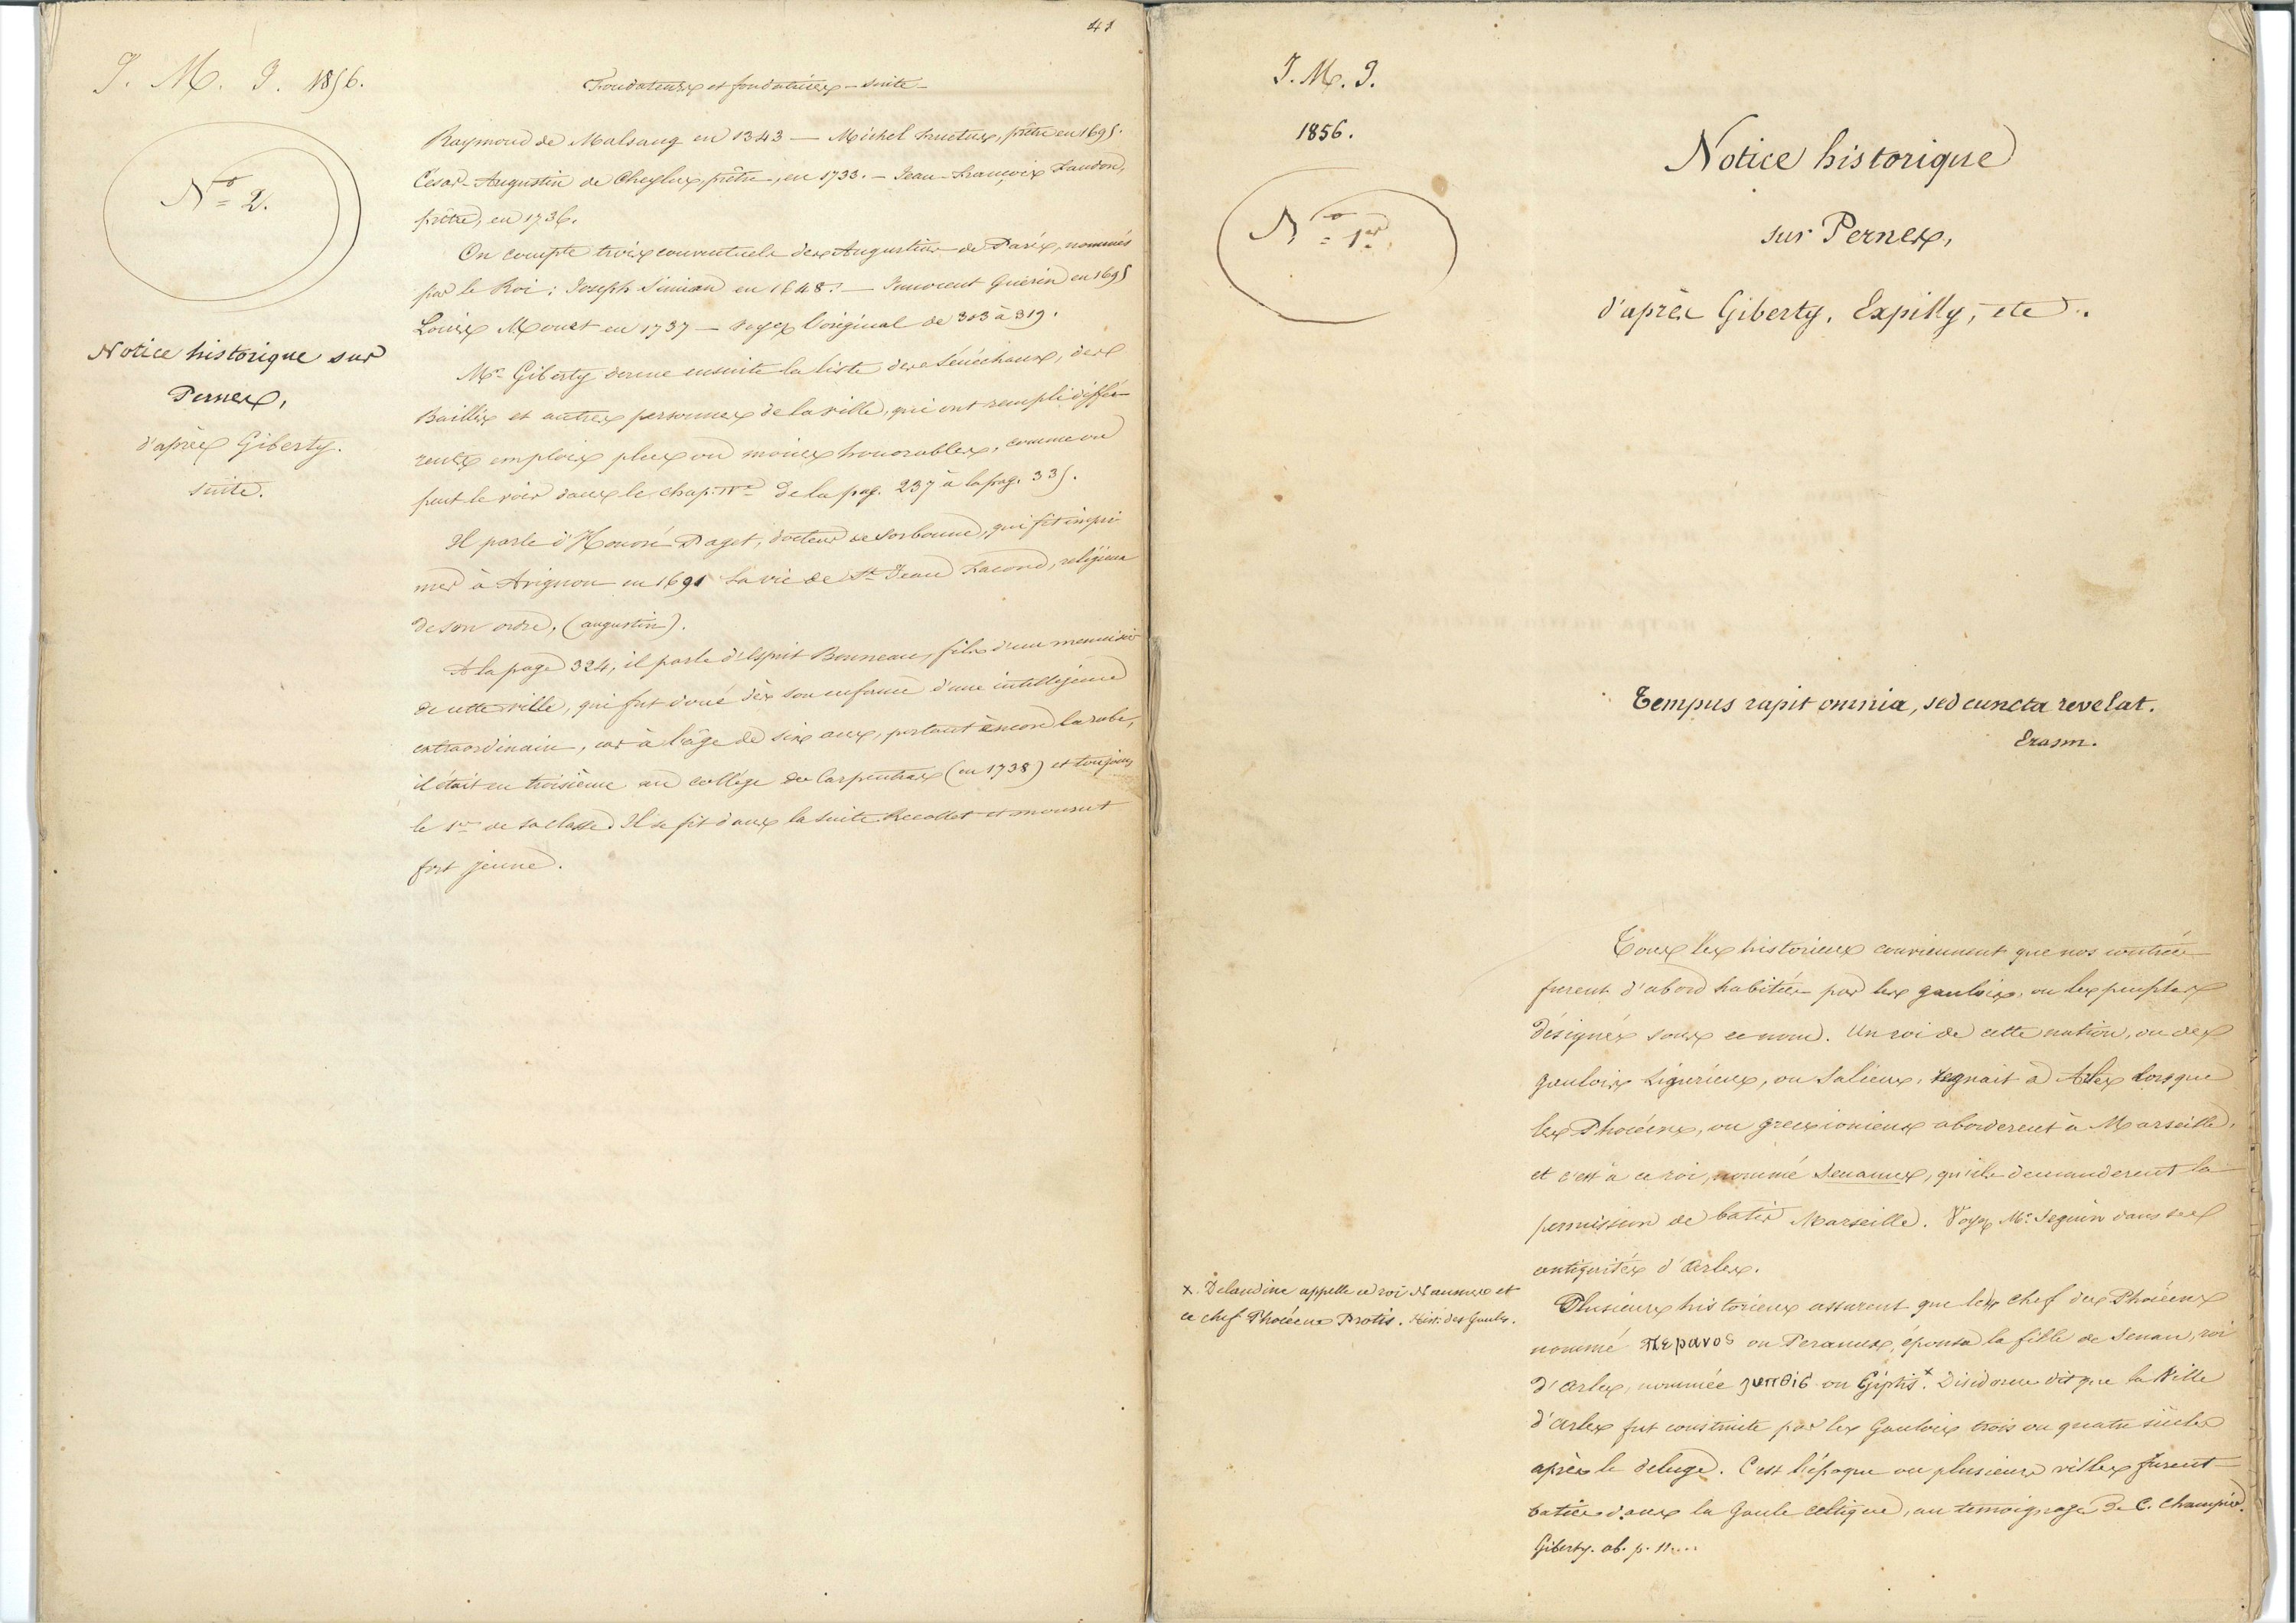 41
J. M. J. 1856.
N° 2.
Notice historique sur
Pernes,
d'après Giberty.
suite.
Fondateurs et fondatrices - suite -
Raymond de Malsang en 1343 — Michel Fructus, prêtre en 1695.
César-Augustin de Cheylus, prêtre, en 1733. — Jean-François
prêtre, en 1736.
On compte trois conventuels des Augustins de Paris, nommés
par le Roi : Joseph Simian en 1648. — Innocent Guérin en 1695
Louis Mouet en 1737 — voyez l'original de 303 à 319.
Mr. Giberty donne ensuite la liste des Sénéchaux, des
Baillis et autres personnes de la ville, qui ont rempli diffé-
rents emplois plus ou moins honorables, comme on
peut le voir dans le chap. de la pag. 237 à la pag. 335.
Il parle d'Honoré Paget, docteur de Sorbonne, qui fit impri-
mer à Avignon en 1691 la vie de St Jean Facond, religieux
de son ordre, (augustin).
A la page 324, il parle d'Esprit Bonneau, fils d'un menuisier
de cette ville, qui fut doué dès son enfance d'une intelligence
extraordinaire, car à l'âge de six ans, portant encore la robe,
il était en troisième au collège de Carpentras (en 1738) et toujours
le 1er de sa classe. Il se fit dans la suite Recollet et mourut
fort jeune.
J. M. J.
1856.
N° 1er
Notice historique
sur Pernes,
d'après Giberty, Expilly, etc..
Tempus rapit omnia, sed cuncta revelat.
Erasm.
Tous les historiens conviennent que nos contrées
furent d'abord habitées par les gaulois, ou les peuples
désignés sous ce nom. Un roi de cette nation, ou des
gaulois Liguriens, ou Saliens, regnait à Arles lorsque
les Phocéens, ou grecs ioniens aborderent à Marseille,
et c'est à ce roi, nommé Senanus, qu'ils demanderent la
permission de batir Marseille. Voyez Mr. Seguin dans ses
antiquités d'Arles.
Plusieurs historiens assurent que le chef des Phocéens
nommé περανος ou Peranus, épousa la fille de Senan, roi
d'Arles, nommée ou Giptis x. dit que la Ville
d'Arles fut construite par les Gaulois trois ou quatre siècles
après le deluge. C'est l'époque ou plusieurs villes furent
baties dans la Gaule Celtique, au temoignage de C. Champier.
Giberty. ab. p. 11....
x. Delandine appelle ce roi Nannus et
ce chef Phocéens Protis. Hist. des Gaules.